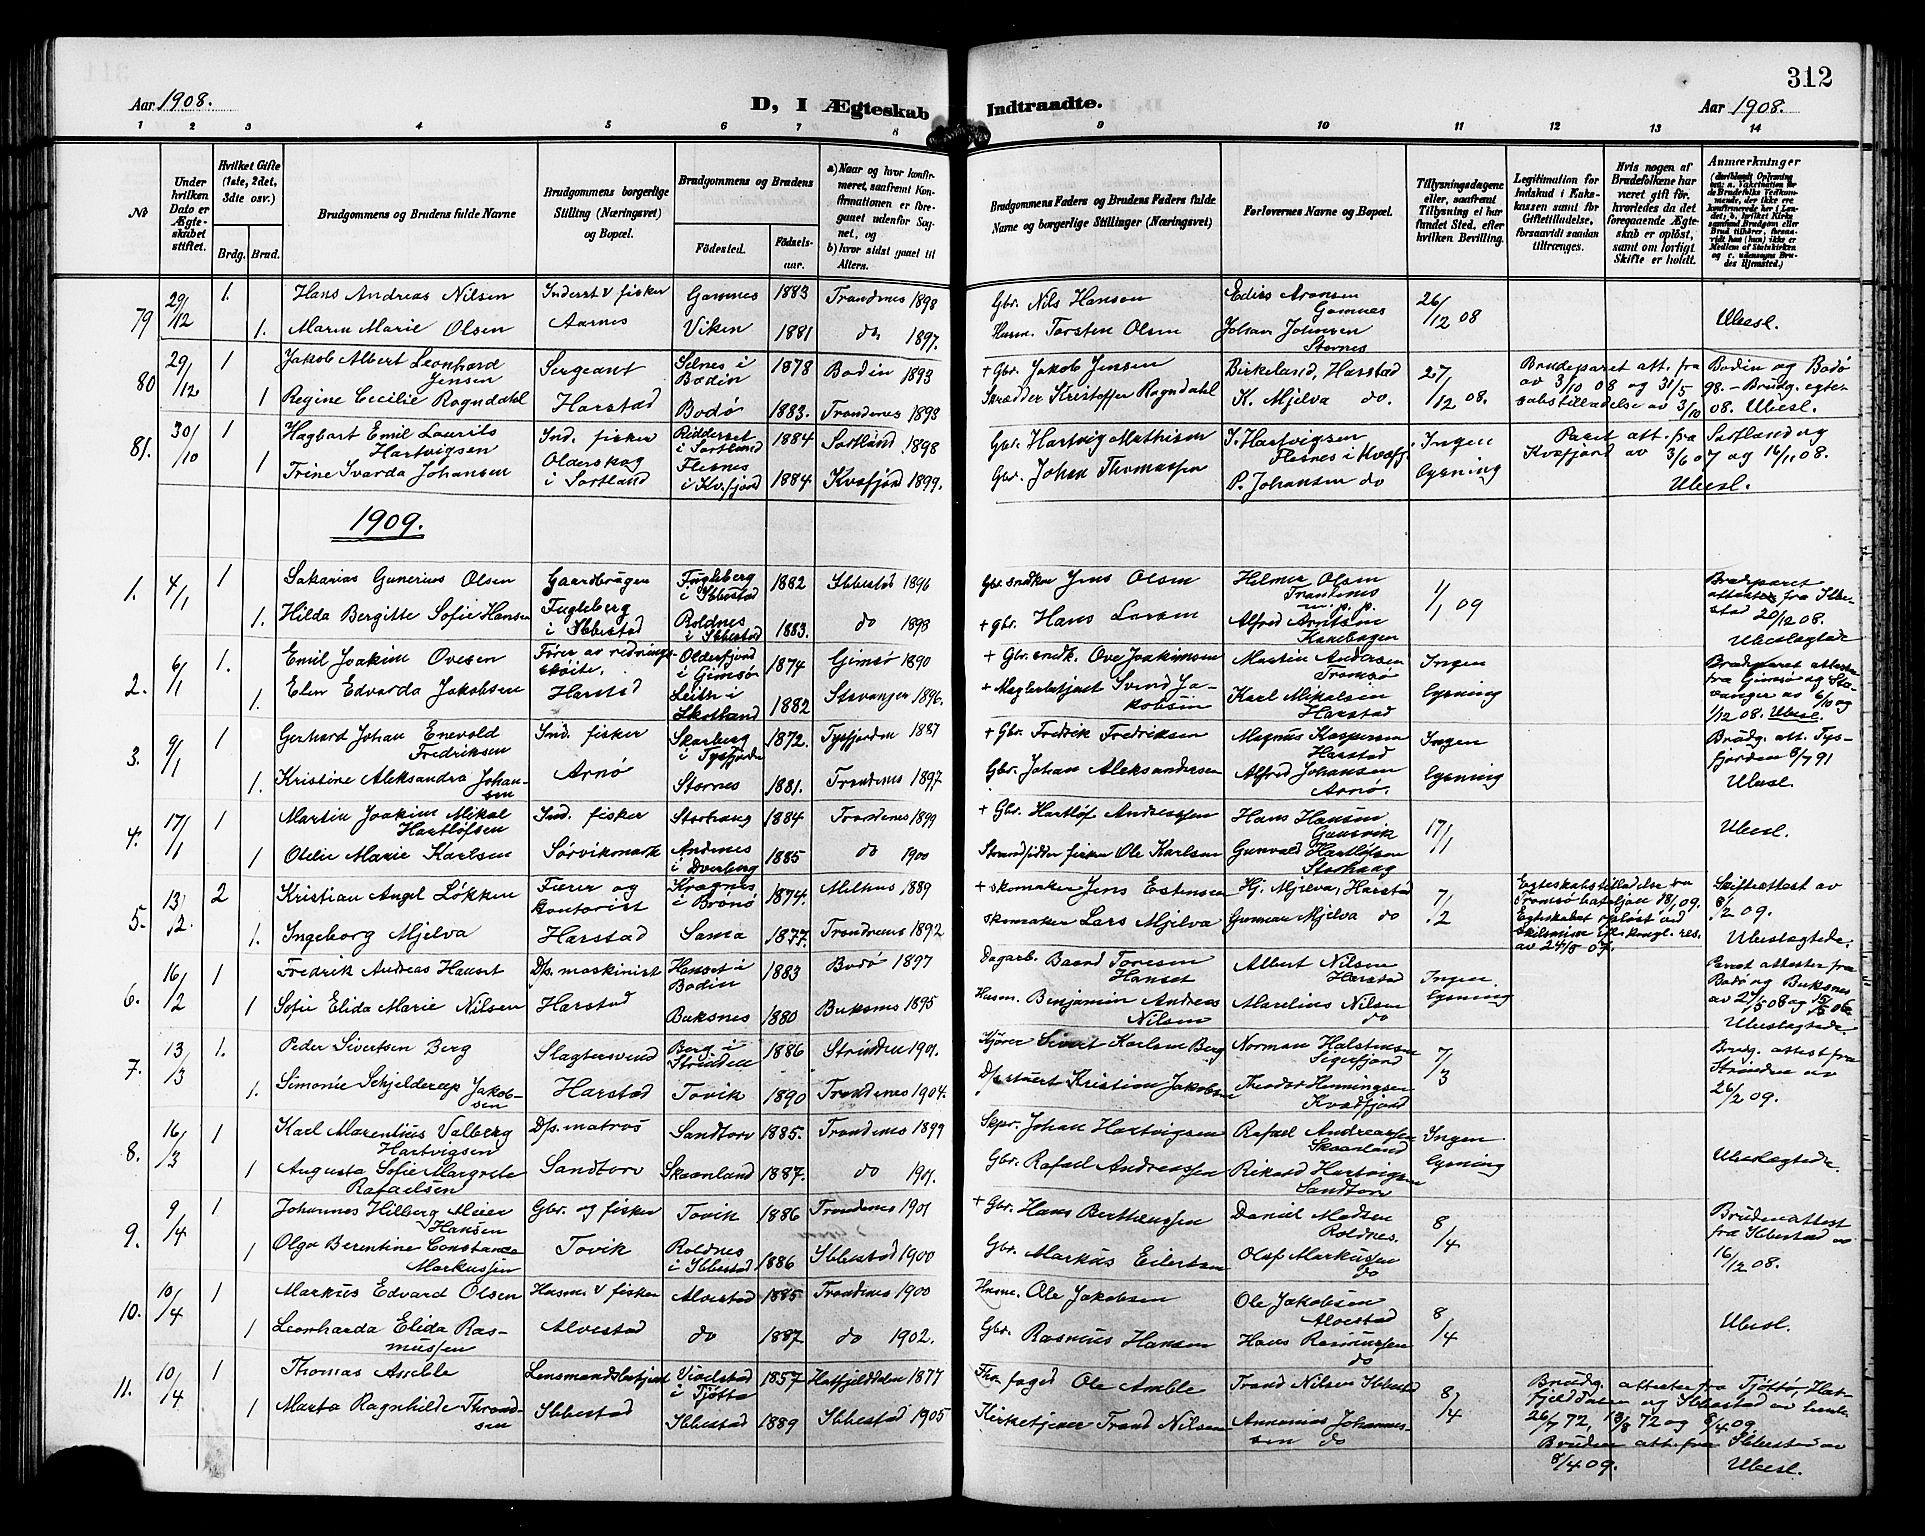 312
Aar 1908.
D, I Ægteskab Indtraadte.
Aar 1908.
1 2 3 4 5 6 7 8 9 10 11 12 13 14
No
Under hvilken Dato er Ægteskabet stiftet.
Hvilket Gifte (1ste, 2det, 3die osv.)
Brdg. Brud.
Brudgommens og Brudens fulde Navne
Brudgommens borgerlige Stilling (Næringsvei) og Bopæl.
Brudgommens og Brudens
Födested.
Födselsaar.
a) Naar og hvor konfirmeret, saafremt Konfirmationen er foregaaet udenfor Sognet, og
b) hvor sidst gaaet til Alters.
Brudgommens Faders og Brudens Faders fulde Navne og borgerlige Stillinger (Næringsvei)
Forlovernes Navne og Bopæl.
Tillysningsdagene eller, saafremt Tillysning ei har fundet Sted, efter hvilken Bevilling.
Legitimation for Indskud i Enkekassen samt for Giftetilladelse, forsaavidt saadan tiltrænges.
Hvis nogen af Brudefolkene har været gift før, hvorledes da det foregaaende Ægteskab er oplöst, samt om lovligt Skifte er holdt.
Anmærkninger
79 29/12 1. Hans Andreas Nilsen Inderst & fisker Gamnes 1883 Trondenes 1898 Gbr. Nils Hanson Edirs Aronsen Gamnes 26/12 08 Ubesl.
1. Maren Marie Olsen Aarnes Viken 1881 do 1897. Husm. Torsten Olsen Johan Johnsen Stornes
80 29/12 1 Jakob Albert Leonhard Jensen Sergeant Selnes i Bodin 1878 Bodin 1893 + Gbr. Jakob Jensen Birkeland, Harstad 27/12 08. Brudeparet att. fra Bodin og Bodø
av 3/10 08 og 31/5 98. - Brudg. egte-
1 Regine Cecilie Rogndahl Harstad Bodø 1883. Trondenes 1898 Skrædder Kristoffer Rogndahl K. Mjelva do. skabstilladelse av 3/10 08. Ubesl.
81. 30/10 1 Hagbart Emil Laurits Hartvigsen Ind. fisker Ridderset i Sortland 1884 Sortland 1898 Gbr. Hartvig Mathisen I. Hartvigsen Flesnes i Kvæfj. Ingen lysning Paret att. fra Sortland og
Kvæfjord av 3/6 07 og 16/11 08.
1 Trine Ivarda Johansen Olderskog i Sortland Flesnes i Kvæfjord 1884 Kvæfjord 1899. Gbr. Johan Thomassen P. Johansen do Ubesl.
1909.
1. 4/1 1 Sakarias Gunerius Olsen Gaardbruger Fugleberg i Ibbestad 1882 Ibbestad 1896 Gbr. snedker Jens Olsen Helmer Olsen Trondenes 1/1 09 Brudparet attester fra Ibbestad 20/12 08.
1. Hilda Bergitte Sofie Hansen Fugleberg i Ibbestad Roldnes i Ibbestad 1883. do 1898 + gbr. Hans Larsen Alfred Arntsen Kanebogen Ubeslægtede
2. 6/1 1. Emil Joakim Ovesen Fører av rednings-skøite. Olderfjord i Gimsø 1874 Gimsø 1890 + Gbr. snedk. Ove Joakimsen Martin Andersen Tromsø Ingen lysning Brudparet attester fra Gimsø og Stavanger av 6/10 og 1/12 08. Ubesl.
1. Elen Edvarda Jakobsen Harstad Leith i Skotland 1882 Stavanger 1896. + Maglerbetjent Svend Jakobsen Karl Mikalsen Harstad
3. 9/1 1 Gerhard Johan Enevold Fredriksen Ind. fisker Skarberg i Tysfjorden 1872. Tysfjorden 1887 + Gbr. Fredrik Fredriksen Magnus Kaspersen Harstad Ingen lysning Brudg. att. Tysfjorden 8/7 91
1. Kristine Aleksandra Johansen Arnø Stornes 1881. Trondenes 1897 Gbr. Johan Aleksandersen Alfred Johansen Arnø. Ubesl.
4. 17/1 1 Martin Joakim Mikal Hartløfsen Ind. fisker Storhaug 1884 Trondenes 1899 + Gbr. Hartløf Andreassen Hans Hansen Gausvik 17/1 Ubesl.
1 Otelie Marie Karlsen Sørvikmark Andenes i Dverberg 1885 do 1900 Strandsidder fisker Ole Karlsen Gunvald Hartløfsen Storhaug
5. 13/2. 2 Kristian Angel Løkken Furer og kontorist Kragnes i Brønø 1874. Melhus 1889 + skomaker Jens Estensen Hj. Mjelva, Harstad 7/2 Egteskabstilladelse fra Tromsø bataljon 18/1 09. Skifteattest av 8/2 09.
Egteskabet opløst ved skilsmisse efter kongl. res. av 24/8 07.
1. Ingeborg Mjelva Harstad Sama 1877. Trondenes 1892 skomaker Lars Mjelva Gunnar Mjelva do Ubeslægtede.
6. 16/2 1 Fredrik Andreas Hanset D/s. maskinist Hanset i Bodin 1883 Bodø 1897 Dagarb. Baard Toresen Hanset Albert Nilsen Harstad Ingen lysning Paret attester fra Bodø og Buksnes
1 Sofie Elida Marie Nilsen Harstad Buksnes 1880 Buksnes 1895 Husm. Benjamin Andreas Nilsen Marelius Nilsen do Ubeslægtede.
7. 13/3 1. Peder Sivertsen Berg Slagtersvend Berg i Strinden 1886 Strinden 1901. Kjører Sivert Karlsen Berg Norman Halstensen Sigerfjord 7/3 Brudg. attest fra Strinden av 26/2 09.
1. Simonie Schjelderup Jakobsen Harstad Tovik 1890 Trondenes 1904. D/s stuert Kristian Jakobsen Theodor Henningsen Kvæfjord
8. 16/3 1 Karl Marentius Valberg Hartvigsen D/s. matros Sandtorv 1885. Trondenes 1899 Skpr. Johan Hartvigsen Rafael Andreassen Skaanland Ingen lysning Ubeslægtede.
1 Augusta Sofie Margrete Rafaelsen Sandtorv Skaanland 1887. do 1901. Gbr. Rafael Andreassen Rikard Hartvigsen Sandtorv
9. 9/4 1 Johannes Hilberg Meier Hansen Gbr. og fisker Tovik 1886 Trondenes 1901 + Gbr. Hans Berthæussen Daniel Madsen Roldnes. 8/4 Bruden attest fra Ibbestad av 16/12 08.
1 Olga Berentine Constance Markussen Tovik Roldnes i Ibbestad 1886 Ibbestad 1900 Gbr. Markus Eilertsen Olaf Markussen do
10. 10/4 1 Markus Edvard Olsen Husm. & fisker Alvestad 1885 Trondenes 1900 Husm. Ole Jakobsen Ole Jakobsen Alvestad 8/4 Ubesl.
1 Leonharda Elida Rasmussen Alvestad do 1887. do 1902. Gbr. Rasmus Hansen Hans Rasmussen do
11. 10/4 1 Thomas Amble Lensmandsbetjent Viedstad i Tjøtta 1857 Hatfjelddalen 1877 Ole Amble Trand Nilsen Ibbestad 8/4 Brudg. attester fra Tjøtta, Hatfjelddalen og Ibbestad av
26/7 72, 18/8 72 og 8/4 09.
1 Marta Ragnhilde Throndsen Ibbestad Ibbestad 1889 Ibbestad 1905 Kirketjener Trand Nilsen Annanias Johannessen do Bruden att. fra Ibbestad av
8/4 09. Ubesl.